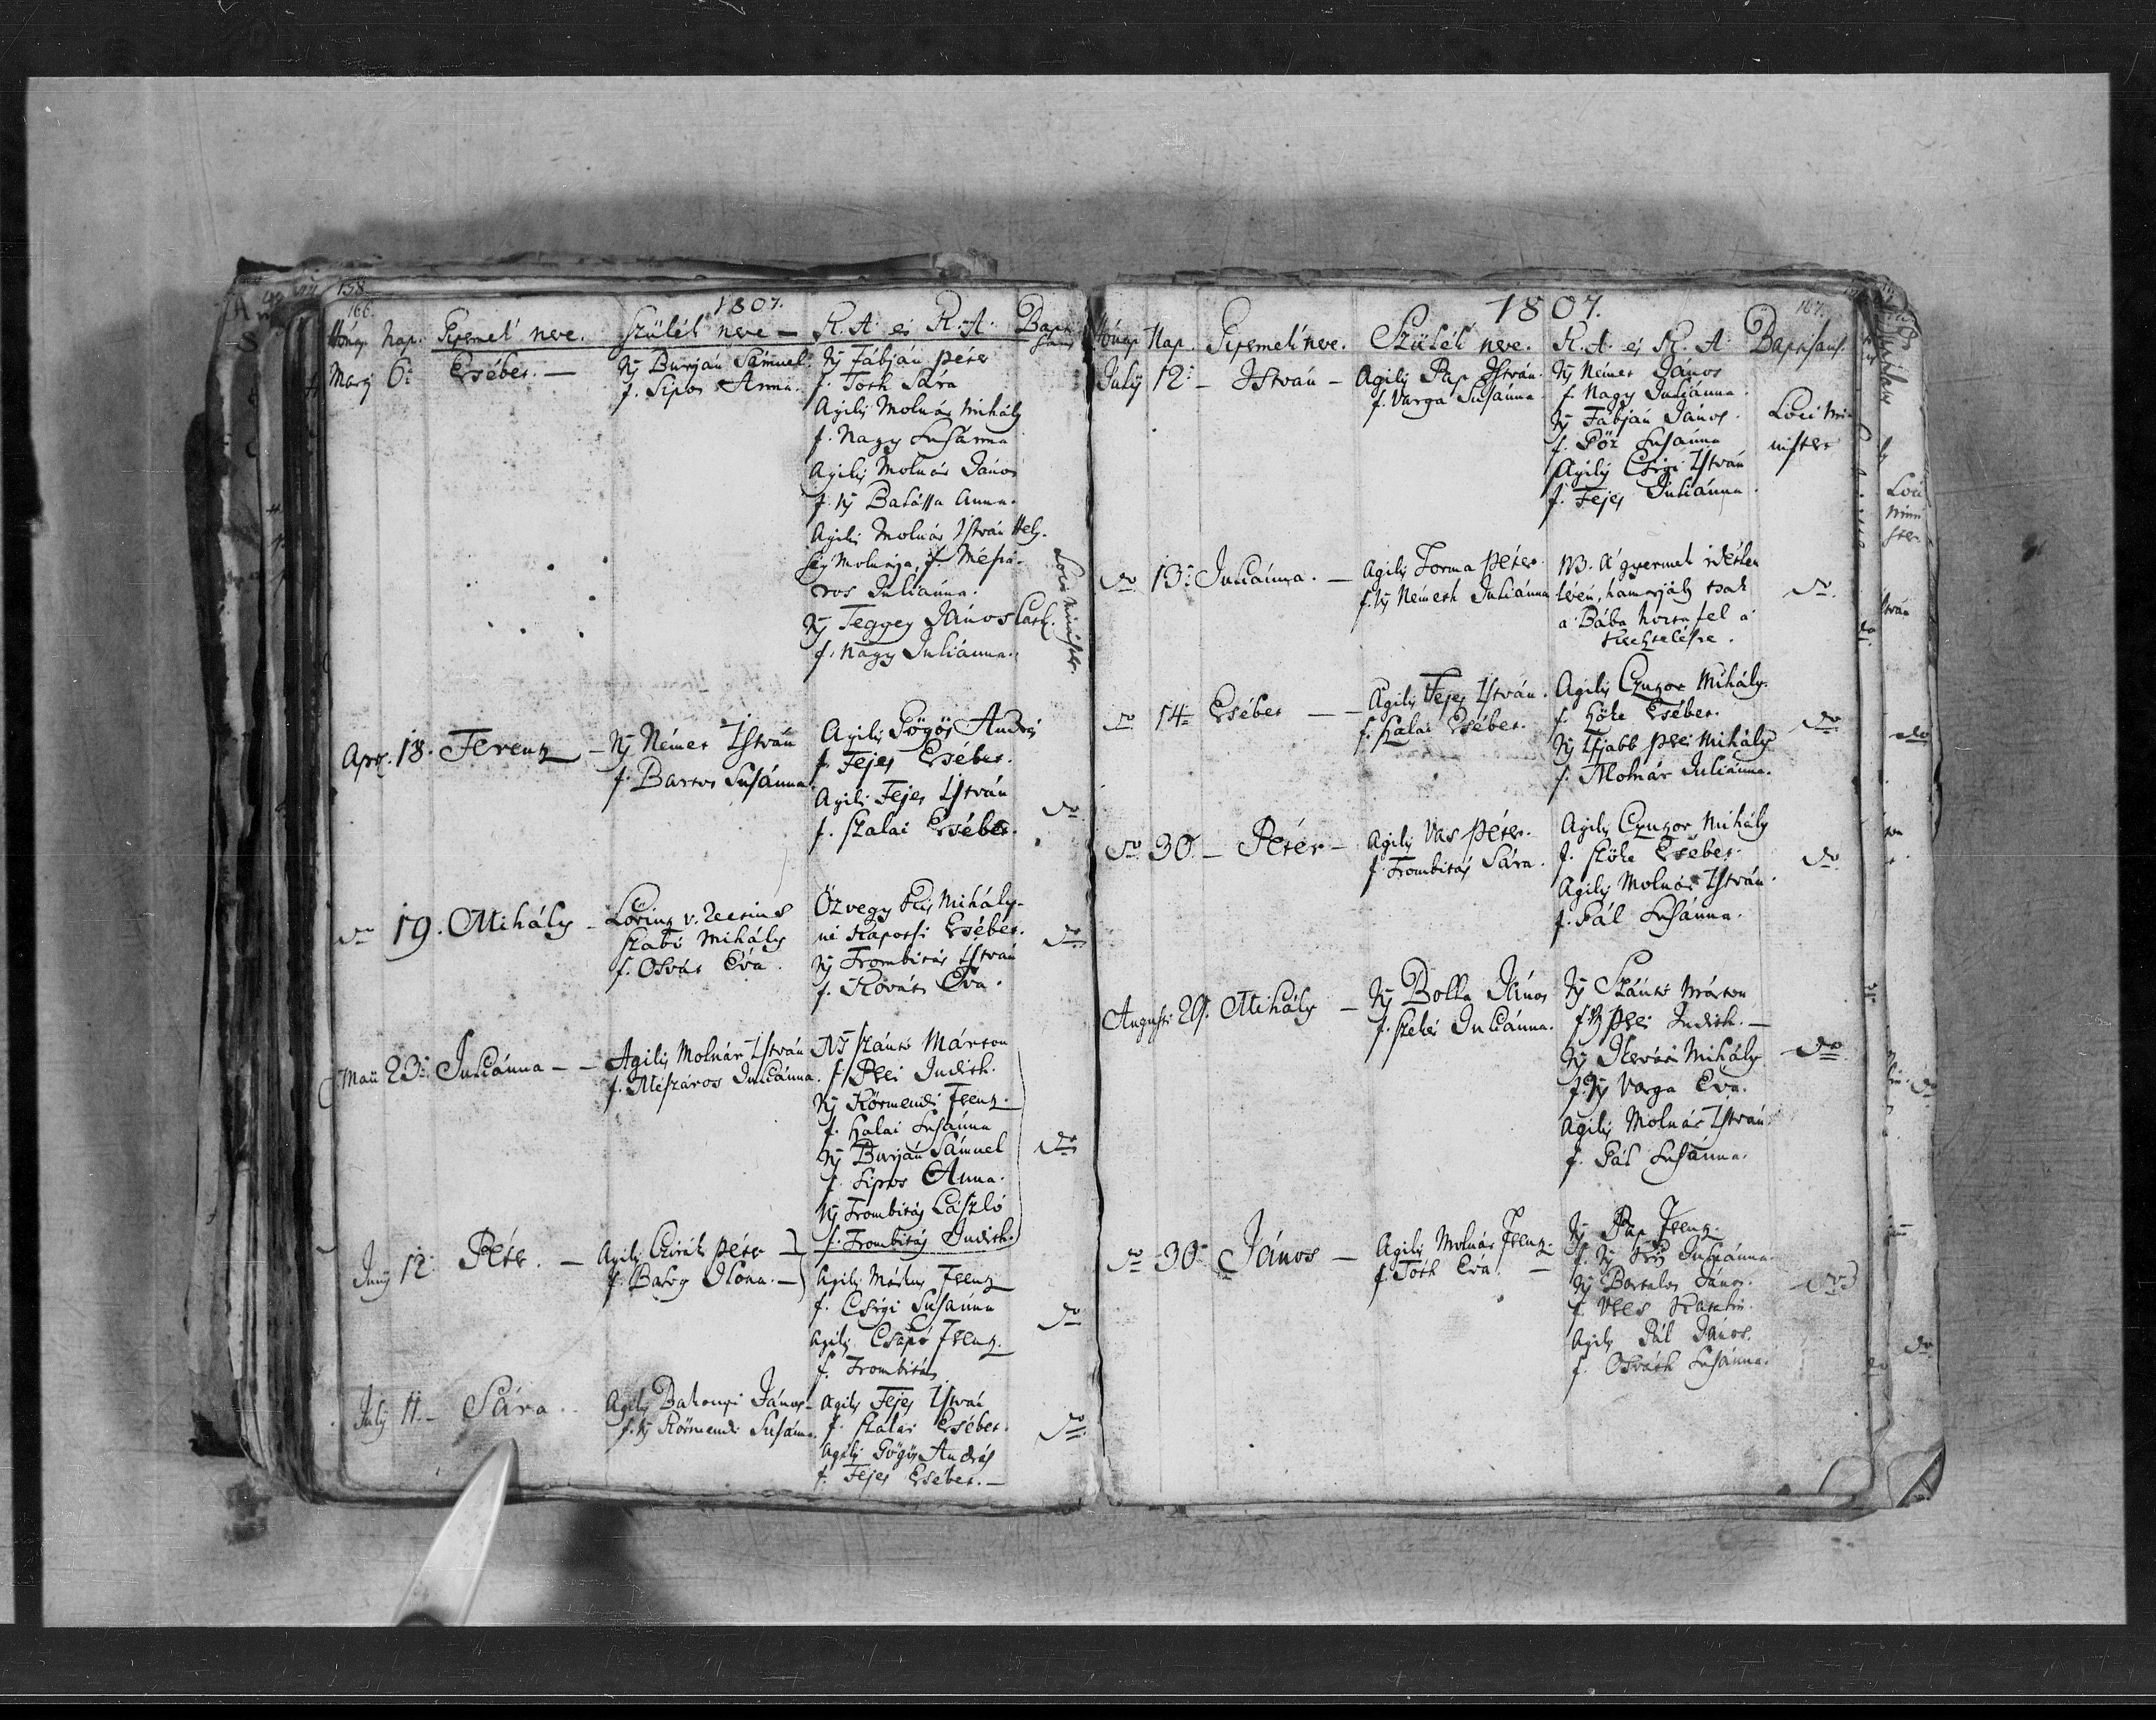 158.
166.
1807.
Hónap. Nap. Gyermek neve. Szülék neve — K. A. és K. A. Bapti
sans
Martz 6. Ersébet. — Nj Burján Sámuel. Nj Fábján Péter
f. Sipos Anna. f. Toth Sára
Agilis Molnár Mihály
f. Nagy Susánna
Agilis Molnár János
f. Nj Balássa Anna.
Agilis Molnár Istvan Hely-
ség Molnárja, f. Mészá-
ros Juliánna.
Nj Teggey János
f. Nagy Juliánna.
Loci Minister.
Apr. 18. Ferentz — Nj Német István
f. Bartos Susánna
Agilis Gögös András
f. Fejes Ersébet.
Agilis Fejes István
f. Szalai Ersébet.
do
do 19. Mihály — Lőrintz
Szabó Mihály
f. Osvát Éva.
Özvegy Kis Mihály-
né Kaposi Ersébet.
Nj Trombitás István
f. Kováts Éva.
do
Maii 23. Juliánna — — Agilis Molnár István
f. Mészáros Juliánna.
Nj Szántó Márton
f. Prei Judith.
Nj Körmendi Ferentz.
f. Szalai Susánna
Nj Burján Sámuel
f. Sipos Anna.
Nj Trombitás László
f. Trombitás Judith.
do
Junij 12. Péter. — Agilis Péter —
f. Balog Ilona. —
Agilis Ferentz
f. Csigi Susánna
Agilis Csapó Ferentz.
f. Trombitás
do
Julij 11. — Sára. Agilis Bakonyi János.
f. Nj Körmendi Susánna.
Agilis Fejes István
f. Szalai Ersébet.
Agilis Gögös András
f. Fejes Ersébet. —
do
1807.
167.
Hónap Nap. Gyermek neve. Szülék neve. K. A. és K. A. Baptisans.
Julij 12. — István — Agilis Pap István.
f. Varga Susánna.
Nj Német János
f. Nagy Juliánna.
Nj Fábján János.
f. Pör Susánna
Agilis Csigi István
f. Fejes Juliánna.
Loci Mi-
nister
do 13. Juliánna. — Agilis Forma Péter.
f. Nj Németh Juliánna
NB. A' gyermek idétlen
lévén, hamarjáb tsak
a' Bába hozta fel a'
Keresztelésre.
do.
do 14. Ersébet — — Agilis Fejes István.
f. Szalai Ersébet.
Agilis Czuczor Mihály.
f. Szőke Ersébet.
Nj Ifjabb Prei Mihály
f. Molnár Juliánna.
do.
do 30. — Péter — Agilis Vas Péter.
f. Trombitás Sára.
Agilis Czuczor Mihály
f. Szőke Ersébet.
Agilis Molnár István.
f. Pál Susánna.
do.
Augusti 29. Mihály — Nj Bolla János
f. Szelei Juliánna.
Nj Szántó Márton
f. Nj Prei Judith. —
Nj Mihály
f. Nj Varga Éva.
Agilis Molnár István.
f. Pál Susánna.
do.
do 30. János — Agilis Molnár Ferentz.
f. Tóth Éva. —
Nj Pap Ferentz.
f. Nj Susánna.
Nj Bertalan János.
f. Veres Katalin.
Agilis Pál János.
f. Osváth Susánna.
do
Loci
Mini
ster
do